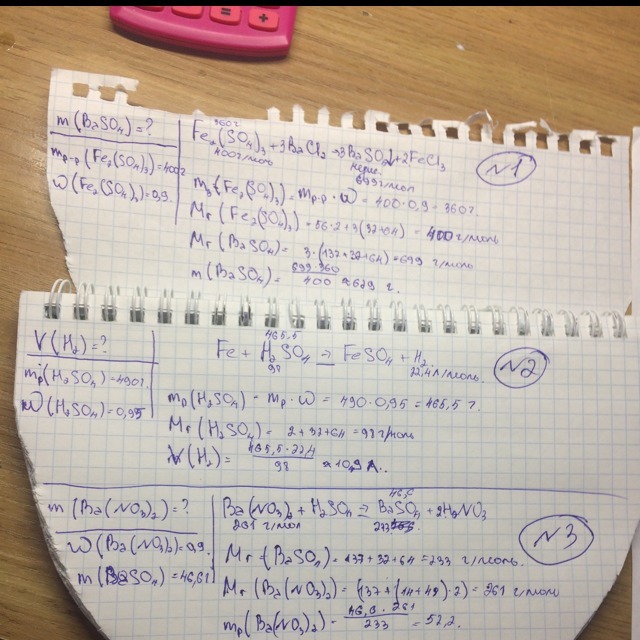 m(BaSO₄)=?
mр-р(Fe₂(SO₄)₃)=400г
ω(Fe₂(SO₄)₃)=0,9.
360г
Fe₂(SO₄)₃+3BaCl₂→3BaSO₄↓+2FeCl₃
400г/моль
699г/моль
N1
(Fe₂(SO₄)₃)=mр-р·ω=400·0,9=360г.
Mr(Fe₂(SO₄)₃)=56·2+3(32+64)=400г/моль
Mr(BaSO₄)=3·(137+32+64)=699 г/моль
m(BaSO₄)=699·360/400≈629 г.
V(H₂)=?
mр(H₂SO₄)=490г.
ω(H₂SO₄)=0,95
465,5
Fe+H₂SO₄=FeSO₄+H₂
98
22,4л/моль.
N2
mр(H₂SO₄)=mр·ω=490·0,95=465,5г.
Mr(H₂SO₄)=2+32+64=98г/моль
V(H₂)=465,5·22,4/98
m(Ba(NO₃)₂)=?
ω(Ba(NO₃)₂)=0,9.
m(BaSO₄)=46,6г
46,6
Ba(NO₃)₂+H₂SO₄=BaSO₄+2HNO₃
261г/мол
233
N3
Mr(BaSO₄)=137+32+64=233 г/моль.
Mr(Ba(NO₃)₂)=(137+(14+48)·2)=261г/моль
mр(Ba(NO₃)₂)=46,6·261/233=52,2.